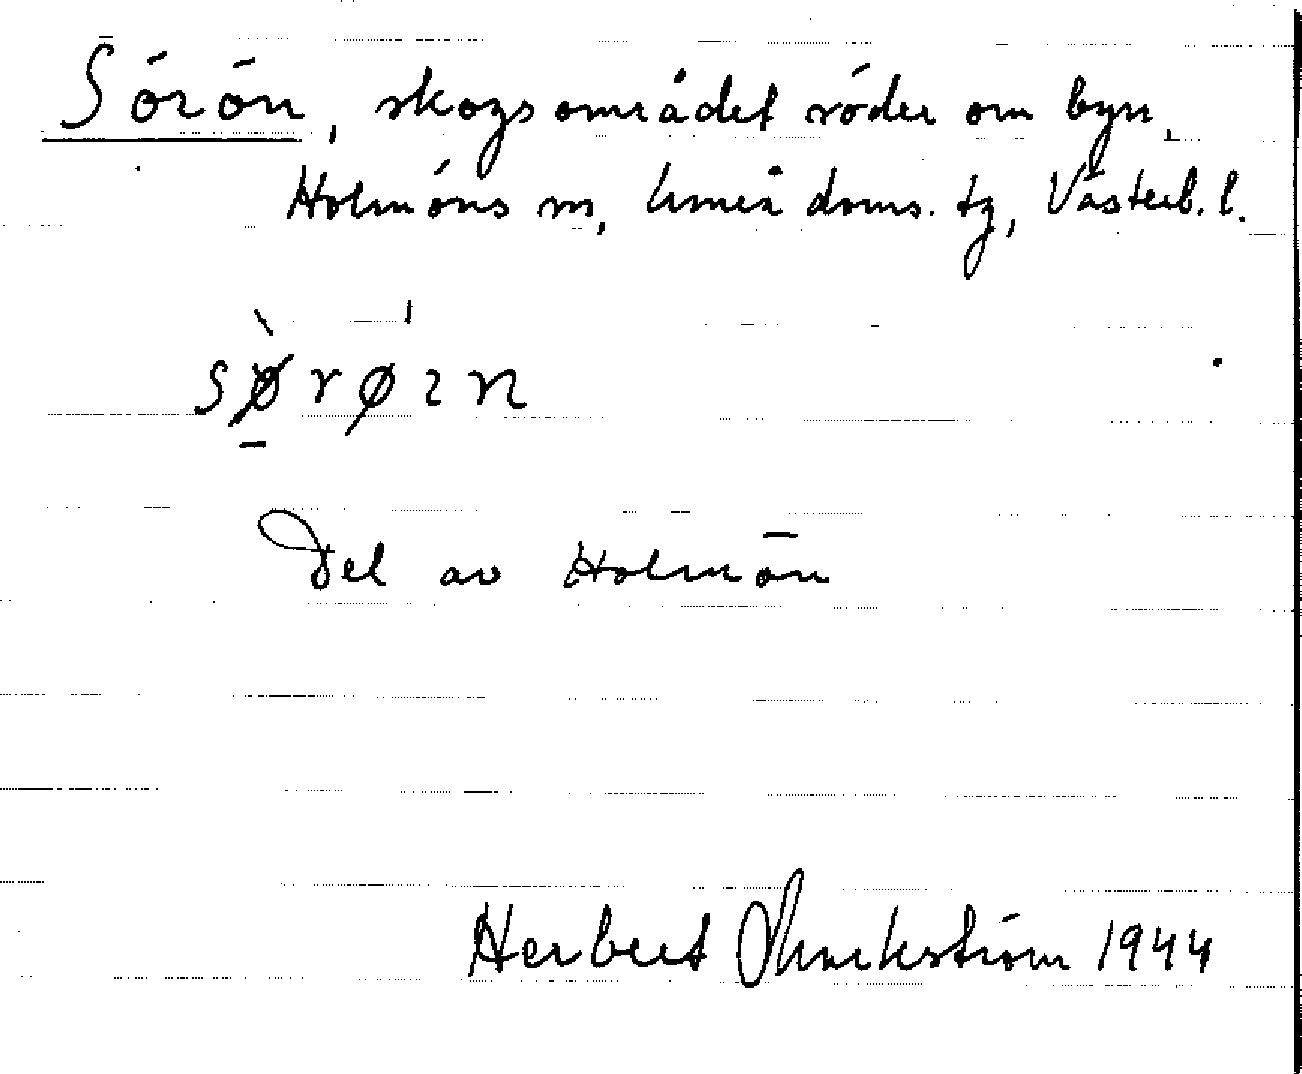 Sörön, skogsområdet söder om byn,
Holmöns sn, Umeå doms. tg, Västerb. l.
sø̀røɩn
Del av Holmön
Herbert 1944